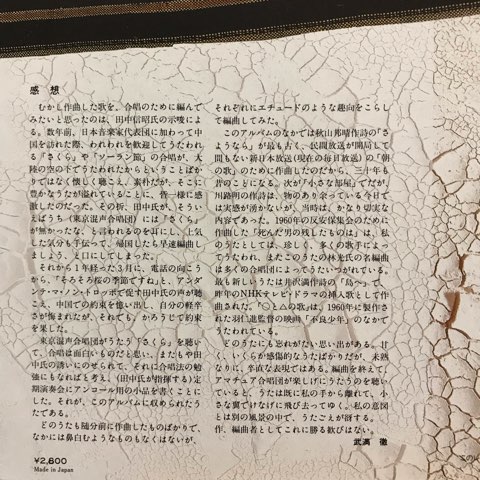 感 想
むかし作曲した歌を、合唱のために編んで
みたいと思ったのは、田中信昭氏の示唆によ
る。数年前、日本音楽家代表団に加わって中
国を訪れた際、われわれを歓迎してうたわれ
る『さくら』や『ソーラン節』の合唱が、大
陸の空の下でうたわれたからということばか
りではなく懐しく聴こえ、素朴だが、そこに
豊かなうたが溢れていることに、皆一様に感
激したのだった。その折、田中氏が、そうい
えばうち（東京混声合唱団）には『さくら』
が無かったな、と言われるのを耳にし、上気
した気分も手伝って、帰国したら早速編曲し
ましょう、と口にしてしまった。
それから1年経った3月に、電話の向こう
から、“そろそろ桜の季節ですね”と、アンダ
ンテ・マ・ノン・トロッポで促す田中氏の声が聴こ
え、中国での約束を憶い出し、自分の軽率
さが悔まれたが、それでも、かろうじて約束
を果した。
東京混声合唱団がうたう『さくら』を聴い
て、合唱は面白いものだと思い、またもや田
中氏の誘いにのせられて、それに合唱法の勉
強にもなればと考え、（田中氏が指揮する）定
期演奏会にアンコール用の小品を書くことに
した。それが、このアルバムに収められたう
たである。
どのうたも随分前に作曲したものばかりで、
なかには鼻白むようなものもなくはないが、
それぞれにエチュードのような趣向をこらし
て編曲してみた。
このアルバムのなかでは秋山邦晴作詩の「さ
ようなら」が最も古く、民間放送が開局して
間もない新日本放送（現在の毎日放送）の「朝
の歌」のために作曲したのだから、三十年も
昔のことになる。次が「小さな部屋」でだが、
川路明の作詩は、物のあり余っている今日で
は実感が湧かないが、当時は、かなり切実な
内容であった。1960年の反安保集会のために
作曲した「死んだ男の残したものは」は、私
のうたとしては、珍しく、多くの歌手によっ
てうたわれ、またこのうたの林光氏の名編曲
は多くの合唱団によってうたいつがれている。
最も新しいうたは井沢満作詩の「島へ」で、
昨年のNHKテレビ・ドラマの挿入歌として作
曲された。「○と△の歌」は、1960年に製作さ
れた羽仁進監督の映画、「不良少年」のなかで
うたわれている。
どのうたにも忘れがたい思い出がある。甘
く、いくらか感傷的なうたばかりだが、未熟
なりに、率直な表現ではある。編曲を終えて
アマチュア合唱団が楽しげにうたうのを聴い
ていると、うたは既に私の手から離れて、小
さな翼でけなげに飛び去ってゆく。私の意図
とは別の風景の中で、うたごえが谺する。
作、編曲者としてこれに勝る歓びはない。
武満 徹
¥2,800
Made in Japan